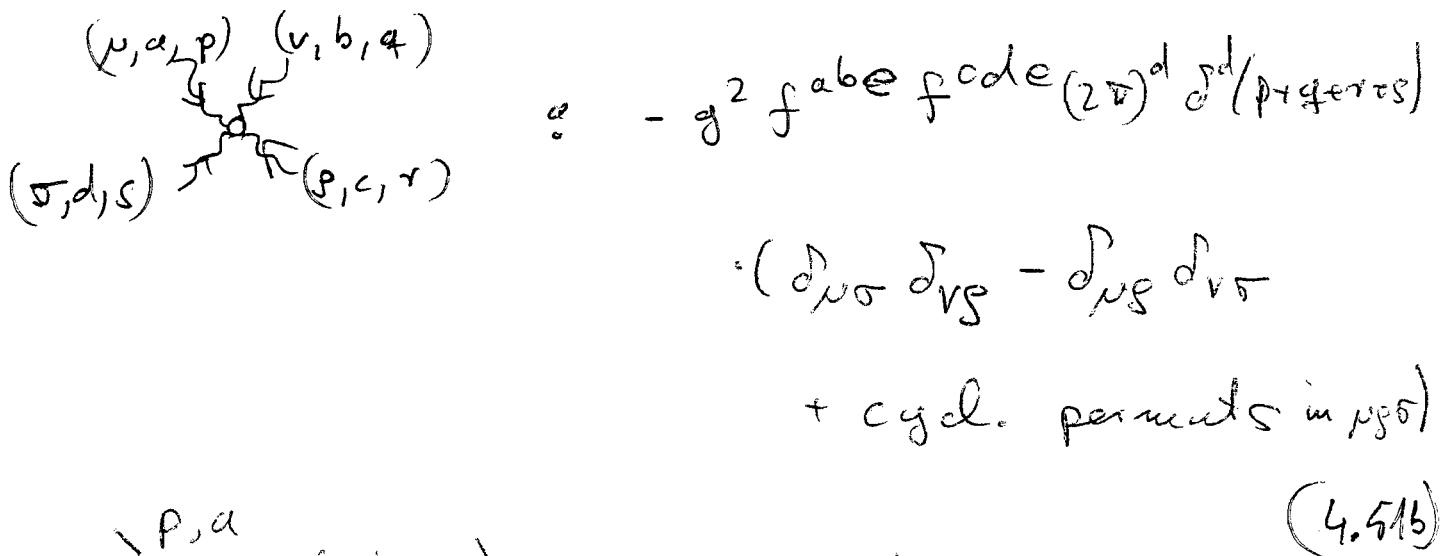 (μ, a, p) (ν, b, q)
: - g² f^{abe} f^{cde} (2π)^d δ^d(p+q+r+s)
(σ, d, s) (ρ, c, r)
· ( δ_{μσ} δ_{νρ} - δ_{μρ} δ_{νσ}
+ cycl. permuts in μρσ)
(4.51b)
p, a